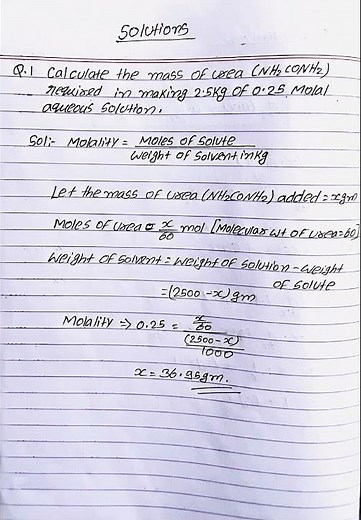 Solutions
Q.1 Calculate the mass of urea (NH2CONH2)
required in making 2.5kg of 0.25 Molal
aqueous solution.
Sol:- Molality = Moles of Solute
Weight of Solvent in Kg
Let the mass of urea (NH2CONH2) added = x gm
Moles of urea = x/60 mol [Molecular wt of urea=60]
Weight of Solvent = Weight of Solution - Weight
of Solute
= (2500 - x) gm
Molality => 0.25 = x/60
(2500 - x)
1000
x = 36.95gm.